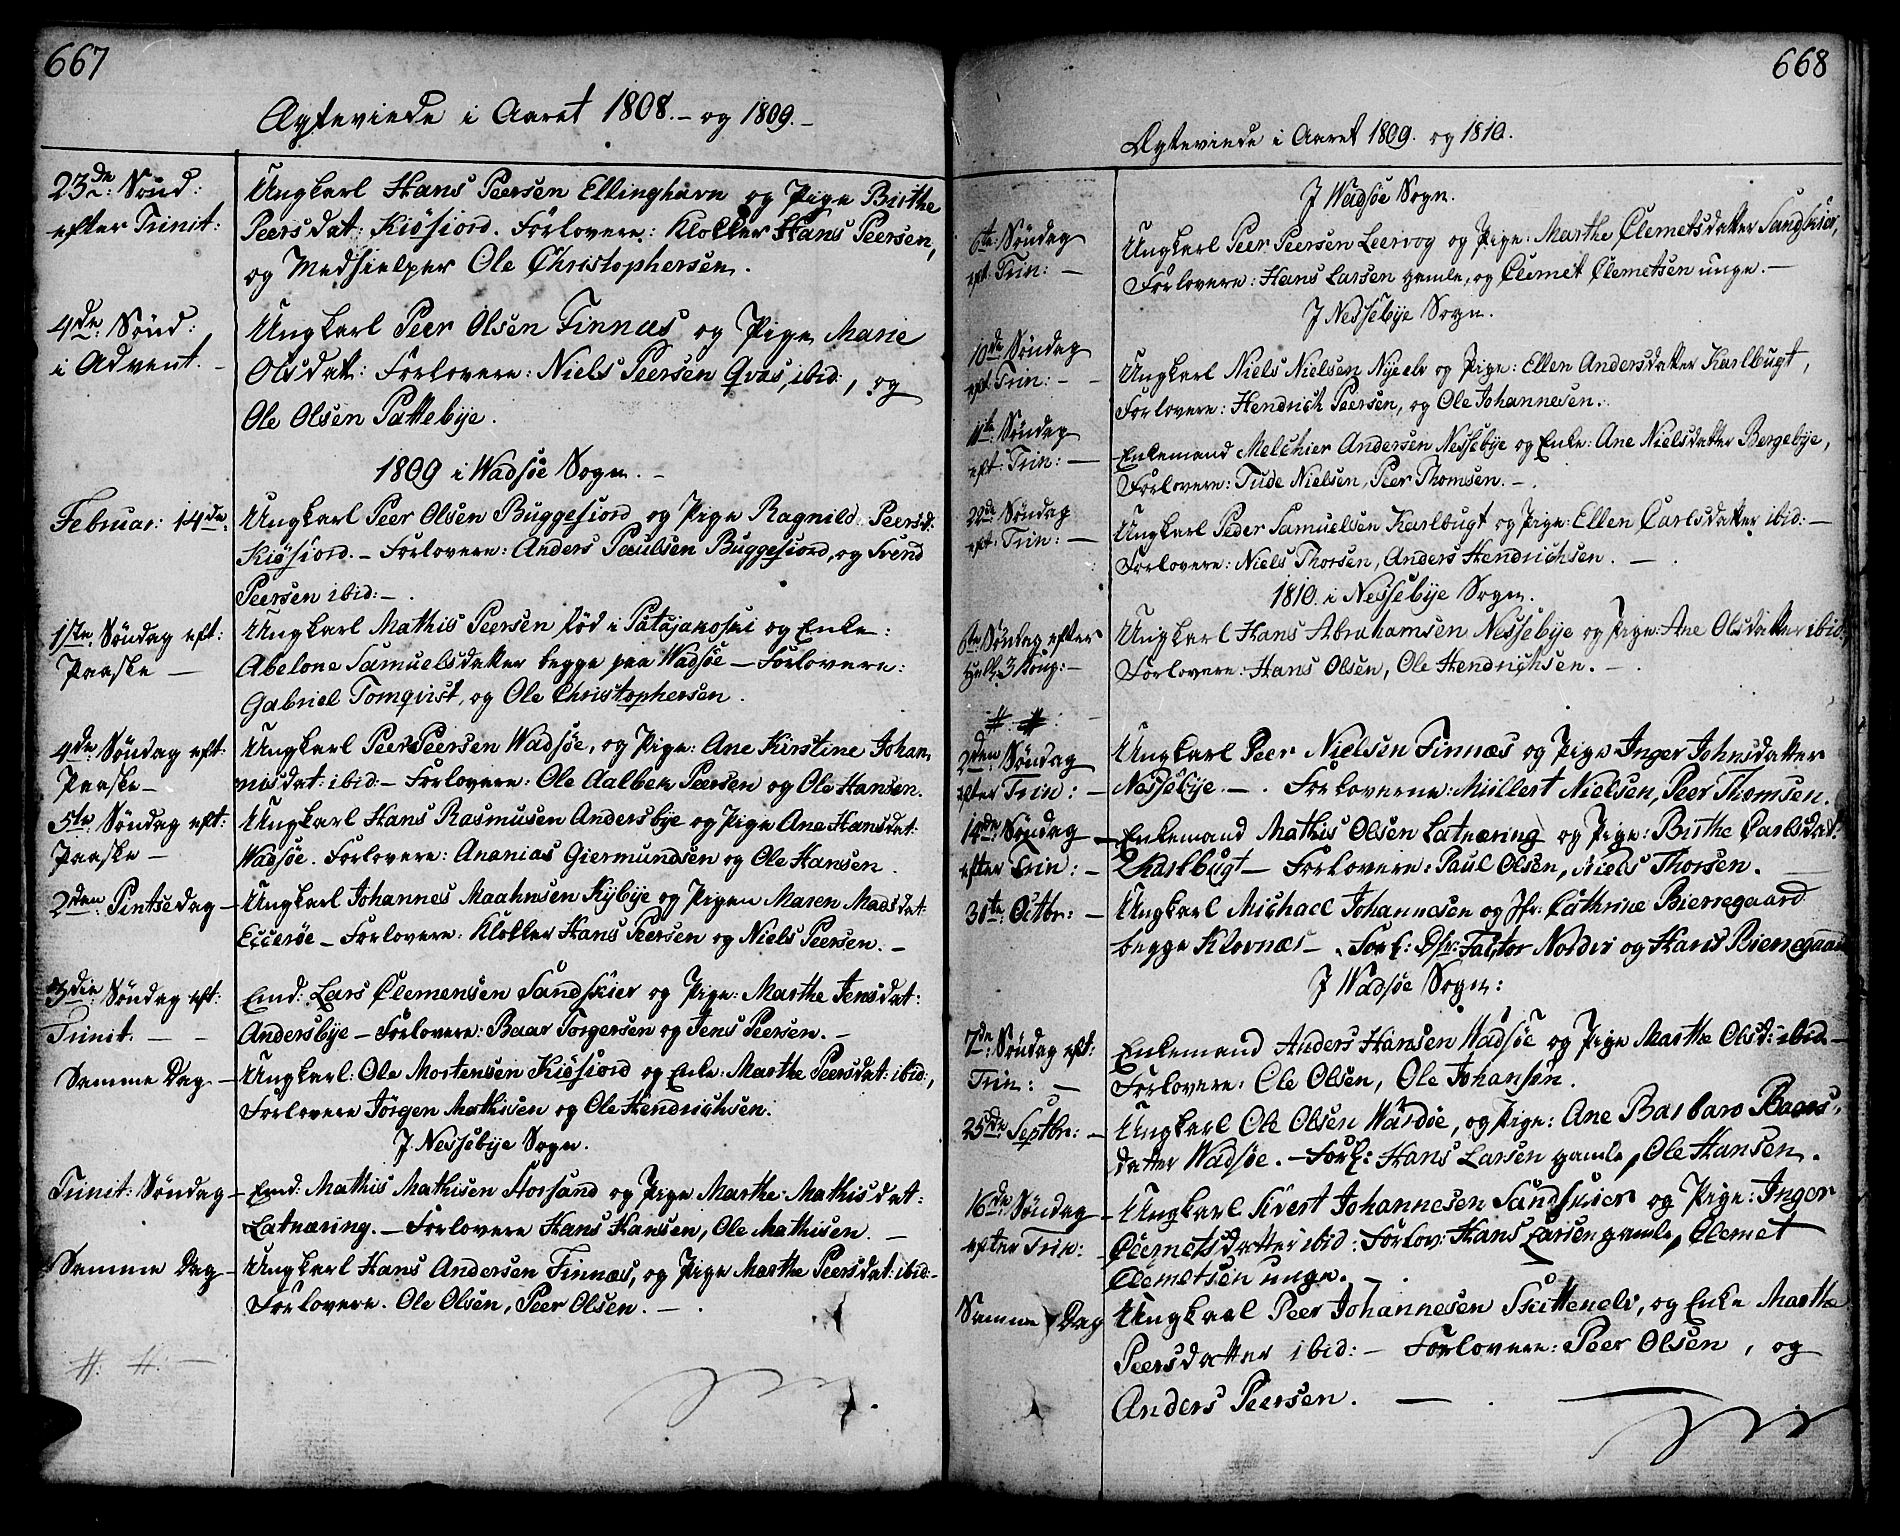 667
Ægteviede i Aaret 1808.- og 1809.-
23de: Sönd:
efter Trinit:
Ungkarl Hans Peersen Ellinghavn og Pige Birthe
Peersdat: Kiösiord. Forlovere: Klokker Hans Peersen,
og Medhielper Ole Christophersen.
4de: Sönd:
i Advent. -
Ungkarl Peer Olsen Finnæs og Pige Marie
Olsdat: Forlovere: Niels Peersen Qvæs ibid:, og
Ole Olsen Pattebÿe.
1809 i Wadsöe Sogn. -
Februar: 14de.
Ungkarl Peer Olsen Buggefiord og Pige Ragnild: Peersd:
Kiösiord. - Forlovere: Anders Paulsen Buggefiord, og Svend
Peersen ibid: -
1ste: Söndag eft:
Paaske -
Ungkarl Mathis Peersen föd i Patajanoski og Enke:
Abelone Samuelsdatter begge paa Wadsöe - Forlovere:
Gabriel Tornqvist, og Ole Christophersen.
4de: Söndag eft:
Paaske -
Ungkarl Peer Peersen Wadsöe, og Pige: Ane Kirstine Johan-
nisdat: ibid - Forlovere: Ole Aalbek Peersen og Ole Hansen.
5te: Söndag eft:
Paaske -
Ungkarl Hans Rasmusen Andersbÿe og Pige Ane Hansdat:
Wadsöe. Forlovere: Ananias Giermundsen og Ole Hansen.
2den: Pintsedag -
Ungkarl Johannes Maahnsen Kÿbÿe og Pigen Maren Madsdat:
Ecceröe - Forlovere: Klokker Hans Peersen og Niels Peersen. -
3die: Söndag eft:
Trinit. - -
Emd: Lars Clemensen Sandskier og Pige: Marthe Jensdat:
Andersbÿe - Forlovere: Baar Torgersen og Jens Peersen. -
Samme Dag. -
Ungkarl: Ole Mortensen Kiösiord og Enke: Marthe Peersdat: ibid:,
Forlovere Jörgen Mathisen og Ole Hendrichsen.
J Nessebÿe Sogn.
Trinit: Söndag -
Emd: Mathis Mathisen Storsand og Pige Marthe Mathisdat:
Latnæring. - Forlovere Hans Hansen, Ole Mathisen. -
Samme Dag -
Ungkarl Hans Andersen Finnæs, og Pige Marthe Peersdat: ibid: -
Forlovere. Ole Olsen, Peer Olsen. - .
#: #: -
668
Ægteviede i Aaret 1809. og 1810.
J Wadsöe Sogn.
6te: Söndag
eft: Trin: -
Ungkarl Peer Peersen Leervog og Pige: Marthe Clemetsdatter Sandskier,
Forlovere: Hans Larsen gamle, og Clemet Clemetsen unge. -
J Nessebÿe Sogn.
10de Söndag
eft: Trin: - -
Ungkarl Niels Nielsen Nÿeelv og Pige: Ellen Andersdatter Karlbugt,
Forlovere: Hendrich Peersen, og Ole Johannesen.
11te: Söndag
eft: Trin: -
Enkemand Melchier Andersen Nessebÿe og Enke: Ane Nielsdatter Bergebÿe,
Forlovere: Tude Nielsen, Peer Thomsen. -
22de: Söndag
eft: Trin: -
Ungkarl Peder Samuelsen Karlbugt og Pige: Ellen Carlsdatter ibid: -
Forlovere: Niels Thorsen, Anders Hendrichsen. -
1810. i Nessebÿe Sogn.
6te: Söndag efter
Hell: 3 Kong: -
Ungkarl Hans Abrahamsen Nessebÿe og Pige: Ane Olsdatter ibid:
Forlovere: Hans Olsen, Ole Hendrichsen. -
#. #:
2den: Söndag
efter Trin: -
Ungkarl Peer Nielsen Finnæs og Pige Inger Johnsdatter
Nessebÿe. - . Forloverne: Müllert Nielsen, Peer Thomsen.
14de Söndag
efter Trin: -
Enkemand Mathis Olsen Latnæring og Pige: Birthe Carlsdat:
Karlbugt - Forlovere: Paul Olsen, Niels Thorsen. -
31te: Octbr: -
Ungkarl Michael Johannesen og Jfr: Cathrine Bierregaard
begge Klovnæs - . Forl: Hr: Factor Nordvi og Hans Bierregaard
J Wadsöe Sogn:
7de: Söndag eft:
Trin: -
Enkemand Anders Hansen Wadsöe og Pige Marthe Olsd: ibid -
Forlovere: Ole Olsen, Ole Johansen.
25de: Septbr: -
Ungkarl Ole Olsen Wardöe, og Pige: Ane Barbara Baars-
datter Wadsöe. - Forl: Hans Larsen gamle, Ole Hansen.
16de Söndag -
efter Trin: -
Ungkarl Sivert Johannesen Sandskier og Pige: Inger
Clemetsdatter ibid: Forlov: Hans Larsen gamle, Clemet
Clemetsen unge. -
Samme Dag
Ungkarl Peer Johannesen Skittenelv, og Enke Marthe
Peersdatter ibid: - Forlovere: Peer Olsen, og
Anders Peersen. - .